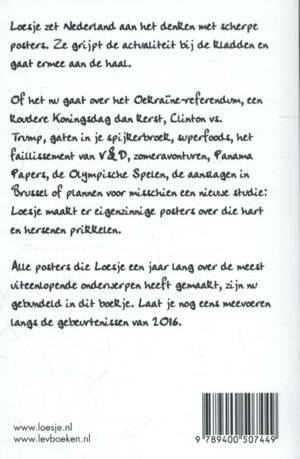 Loesje zet Nederland aan het denken met scherpe
posters. Ze grijpt de actualiteit bij de kladden en
gaat ermee aan de haal.
Of het nu gaat over het Oekraïne-referendum, een
koudere Koningsdag dan Kerst, Clinton vs.
Trump, gaten in je spijkerbroek, superfoods, het
faillissement van V&D, zomeravonturen, Panama
Papers, de Olympische Spelen, de aanslagen in
Brussel of plannen voor misschien een nieuwe studie:
Loesje maakt er eigenzinnige posters over die hart
en hersenen prikkelen.
Alle posters die Loesje een jaar lang over de meest
uiteenlopende onderwerpen heeft gemaakt, zijn nu
gebundeld in dit boekje. Laat je nog eens meevoeren
langs de gebeurtenissen van 2016.
www.loesje.nl
www.levboeken.nl
9 789400 507449